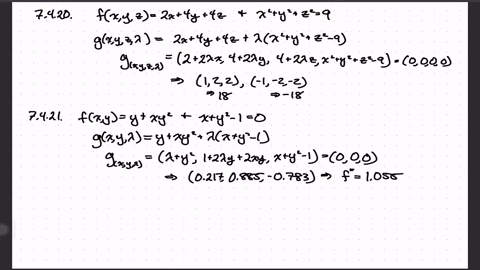 7.4.20. f(x,y,z)=2x+4y+4z + x²+y²+z²=9
g(x,y,z,λ) = 2x+4y+4z+λ(x²+y²+z²-9)
g(x,y,z,λ) = (2+2λx, 4+2λy, 4+2λz, x²+y²+z²-9)=(0,0,0,0)
⇒ (1,2,2), (-1,-2,-2)
⇒18 ⇒-18
7.4.21. f(x,y)=y+xy² + x+y²-1=0
g(x,y,λ)=y+xy²+λ(x+y²-1)
g(x,y,λ) = (λ+y², 1+2λy+2xy, x+y²-1)=(0,0,0)
⇒ (0.217, 0.885, -0.783) ⇒ f*=1.055